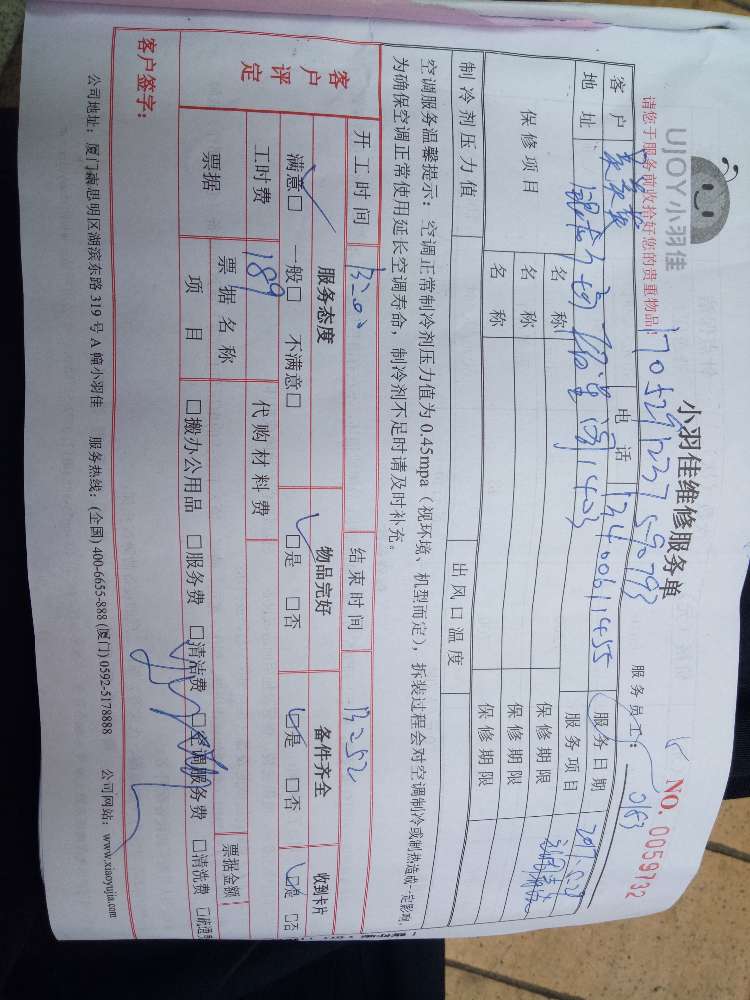 UJOY小羽佳
小羽佳维修服务单
NO. 0059732
请您于服务前收拾好您的贵重物品!
服务员工: 0183
客户 电话 13400611455 服务日期
地址 服务项目
保修项目 名称 保修期限
名称 保修期限
名称 保修期限
制冷剂压力值 出风口温度
空调服务温馨提示: 空调正常制冷剂压力值为 0.45mpa (视环境、机型而定), 拆装过程会对空调制冷或制热造成一定影响
为确保空调正常使用延长空调寿命, 制冷剂不足时请及时补充。
开工时间 结束时间
客户评定 服务态度 物品完好 备件齐全 收到卡片
满意□ 一般□ 不满意□ □是 □否 □是 □否 □是 □否
工时费 189 代购材料费
票据 票据名称 票据金额
项目 □搬办公用品 □服务费 □清洁费 □空调服务费 □清洗费
客户签字:
公司地址: 厦门市思明区湖滨东路 319 号 A 幢小羽佳 服务热线: (全国) 400-6655-888 (厦门) 0592-5178888 公司网站: www.xiaoyujia.com